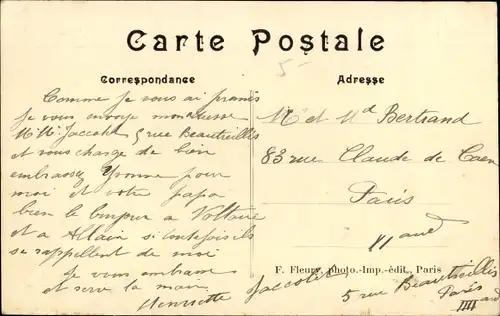 Carte Postale
5-
Correspondance
Adresse
Comme je vous ai promis
je vous envoye mon adresse
Mme Jaccotet 5 rue Beautreillis
et vous charge de bien
embrasser Yvonne pour
moi et votre papa
bien le bonjour a Voltaire
et a Allain si toutefois ils
se rappellent de moi
Je vous embrasse
et serre la main
Henriette
Jaccotet
5 rue Beautreillis
Paris
Mr et Md Bertrand
83 rue Claude de Caen
Paris
F. Fleury, photo.-Imp.-édit., Paris